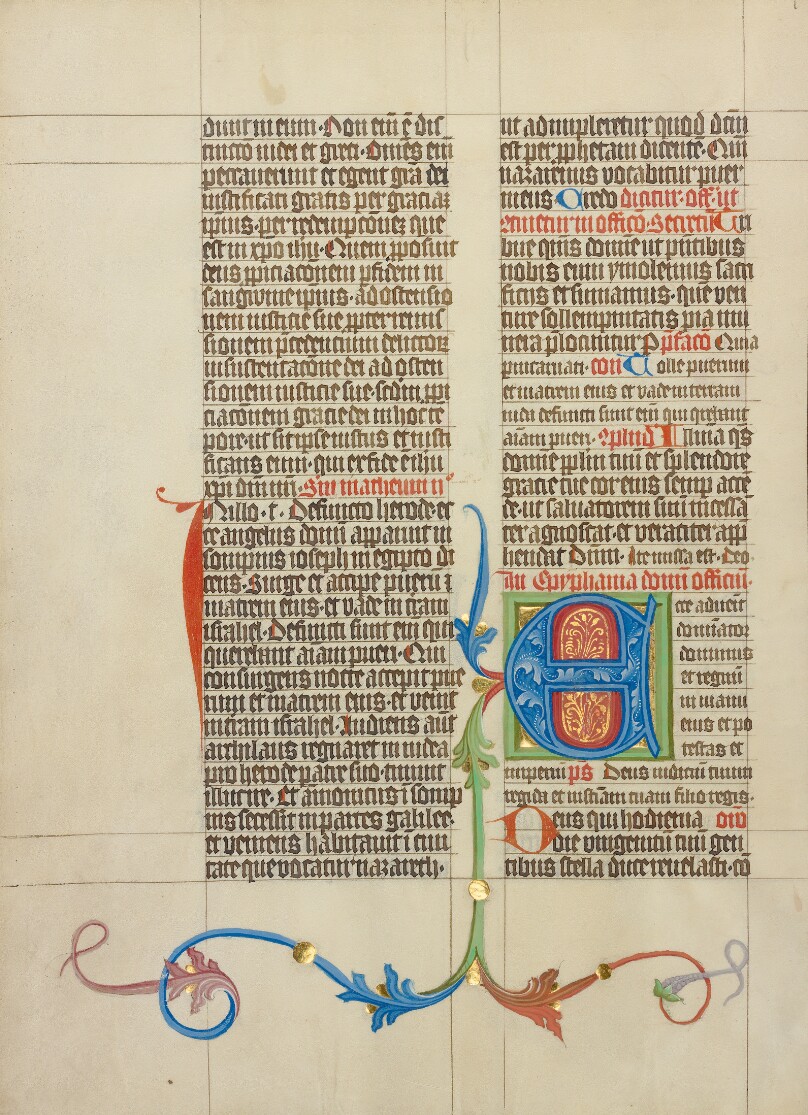 dunt in eum. Non eni͂ e͂ dis
tinctio iudei et greci. Om͂es eni͂
peccauerunt et egent gr͂a dei
iustificati gratis per gracia͂
ipius. per redempcōnez que
est in xp͂o ih͂u. Quem p͂posuit
deus p͂piciacōnem p͂ fidem in
sanguine ip͂ius. ad ostensio
nem iusticie sue p͂pter remis
sionem p͂cedencium delictoꝝ
in sustentacōne dei ad osten
sionem iusticie sue. sc͂dm p͂pi
ciacōnem gracie dei in hoc te͂
pore. ut sit ip͂se iustus et iusti
ficans eum. qui ex fide e͂ ih͂u
xp͂i dn͂i nr͂i. S͂m matheum
In illo. t. Defuncto herode. ec
ce angelus domi͂ apparuit in
sompnis ioseph in egipto di
cens. Surge et accipe pueru͂ ⁊
matrem eius. et vade in t͂ram
israhel. Defuncti sunt eni͂ qui
querebant ai͂am pueri. Qui
consurgens nocte accepit pue
rum et matrem eius. et venit
in t͂ram israhel. Audiens aut͂
archilaus regnaret in iudea
pro herode patre suo. timuit
illuc ire. Et amonitus i͂ somp
nis secessit in partes galilee.
et veniens habitauit i͂ ciui
tate que vocatur nazareth.
ut adimpleretur quod dc͂m
est per p͂phetam dicente͂. Qm͂
nazarenus vocabitur puer
meus Credo dicitur. off. ut
renuetur in offico. Secret͂
bue qs͂ domi͂e ut pn͂tibus
nobis eum ymolemus sacri
ficiis et sumamus. que ven
ture sollempnitatis pia mu
nera p͂locuntur P͂faco͂ Quia
p͂ incarnati. con͂ Tolle puerum
et matrem eius et vade in terram
iuda defuncti sunt eni͂ qui querebant
ai͂am pueri. Illumina qs͂
domine pp͂lm tuu͂ et splendore
gracie tue cor eius semp͂ acce͂
de. ut saluatorem suu͂ incessa͂
ter agnoscat. et veraciter app͂
hendat Dn͂m. Ite missa est. Deo
In Epyphania domi͂ officiu͂.
Ecce aduenit
domi͂ator
dominus
et regnu͂
in manu
eius et po
testas et
imperiu͂ ps͂ Deus iudiciu͂ tuum
regi da et iusti͂am tuam filio regis.
Deus qui hodierna oro͂
die vnigenitu͂ tuu͂ gen
tibus stella duce reuelasti. co͂